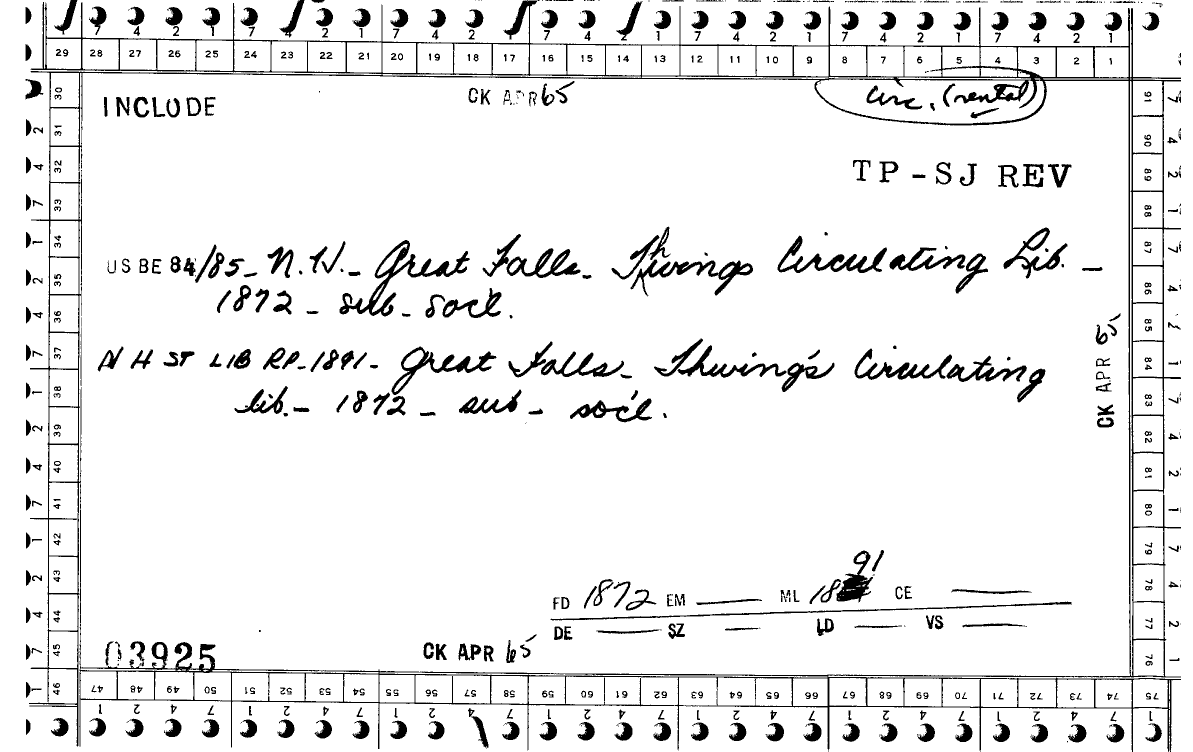 7 4 2 1 7 4 2 1 7 4 2 1 7 4 2 1 7 4 2 1 7 4 2 1 7 4 2 1
29 28 27 26 25 24 23 22 21 20 19 18 17 16 15 14 13 12 11 10 9 8 7 6 5 4 3 2 1
INCLUDE CK APR 65 circ. (rental)
TP-SJ REV
US BE 84/85 - N.H. - Great Falls - Thwings Circulating Lib. -
1872 - sub - soc'l.
N H ST LIB RP - 1891 - Great Falls - Thwing's Circulating
lib. - 1872 - sub - soc'l.
CK APR 65
91
FD 1872 EM — ML 18 CE —
DE — SZ — LD — VS —
03925 CK APR 65
30 31 32 33 34 35 36 37 38 39 40 41 42 43 44 45 46
47 48 49 50 51 52 53 54 55 56 57 58 59 60 61 62 63 64 65 66 67 68 69 70 71 72 73 74 75
76 77 78 79 80 81 82 83 84 85 86 87 88 89 90 91